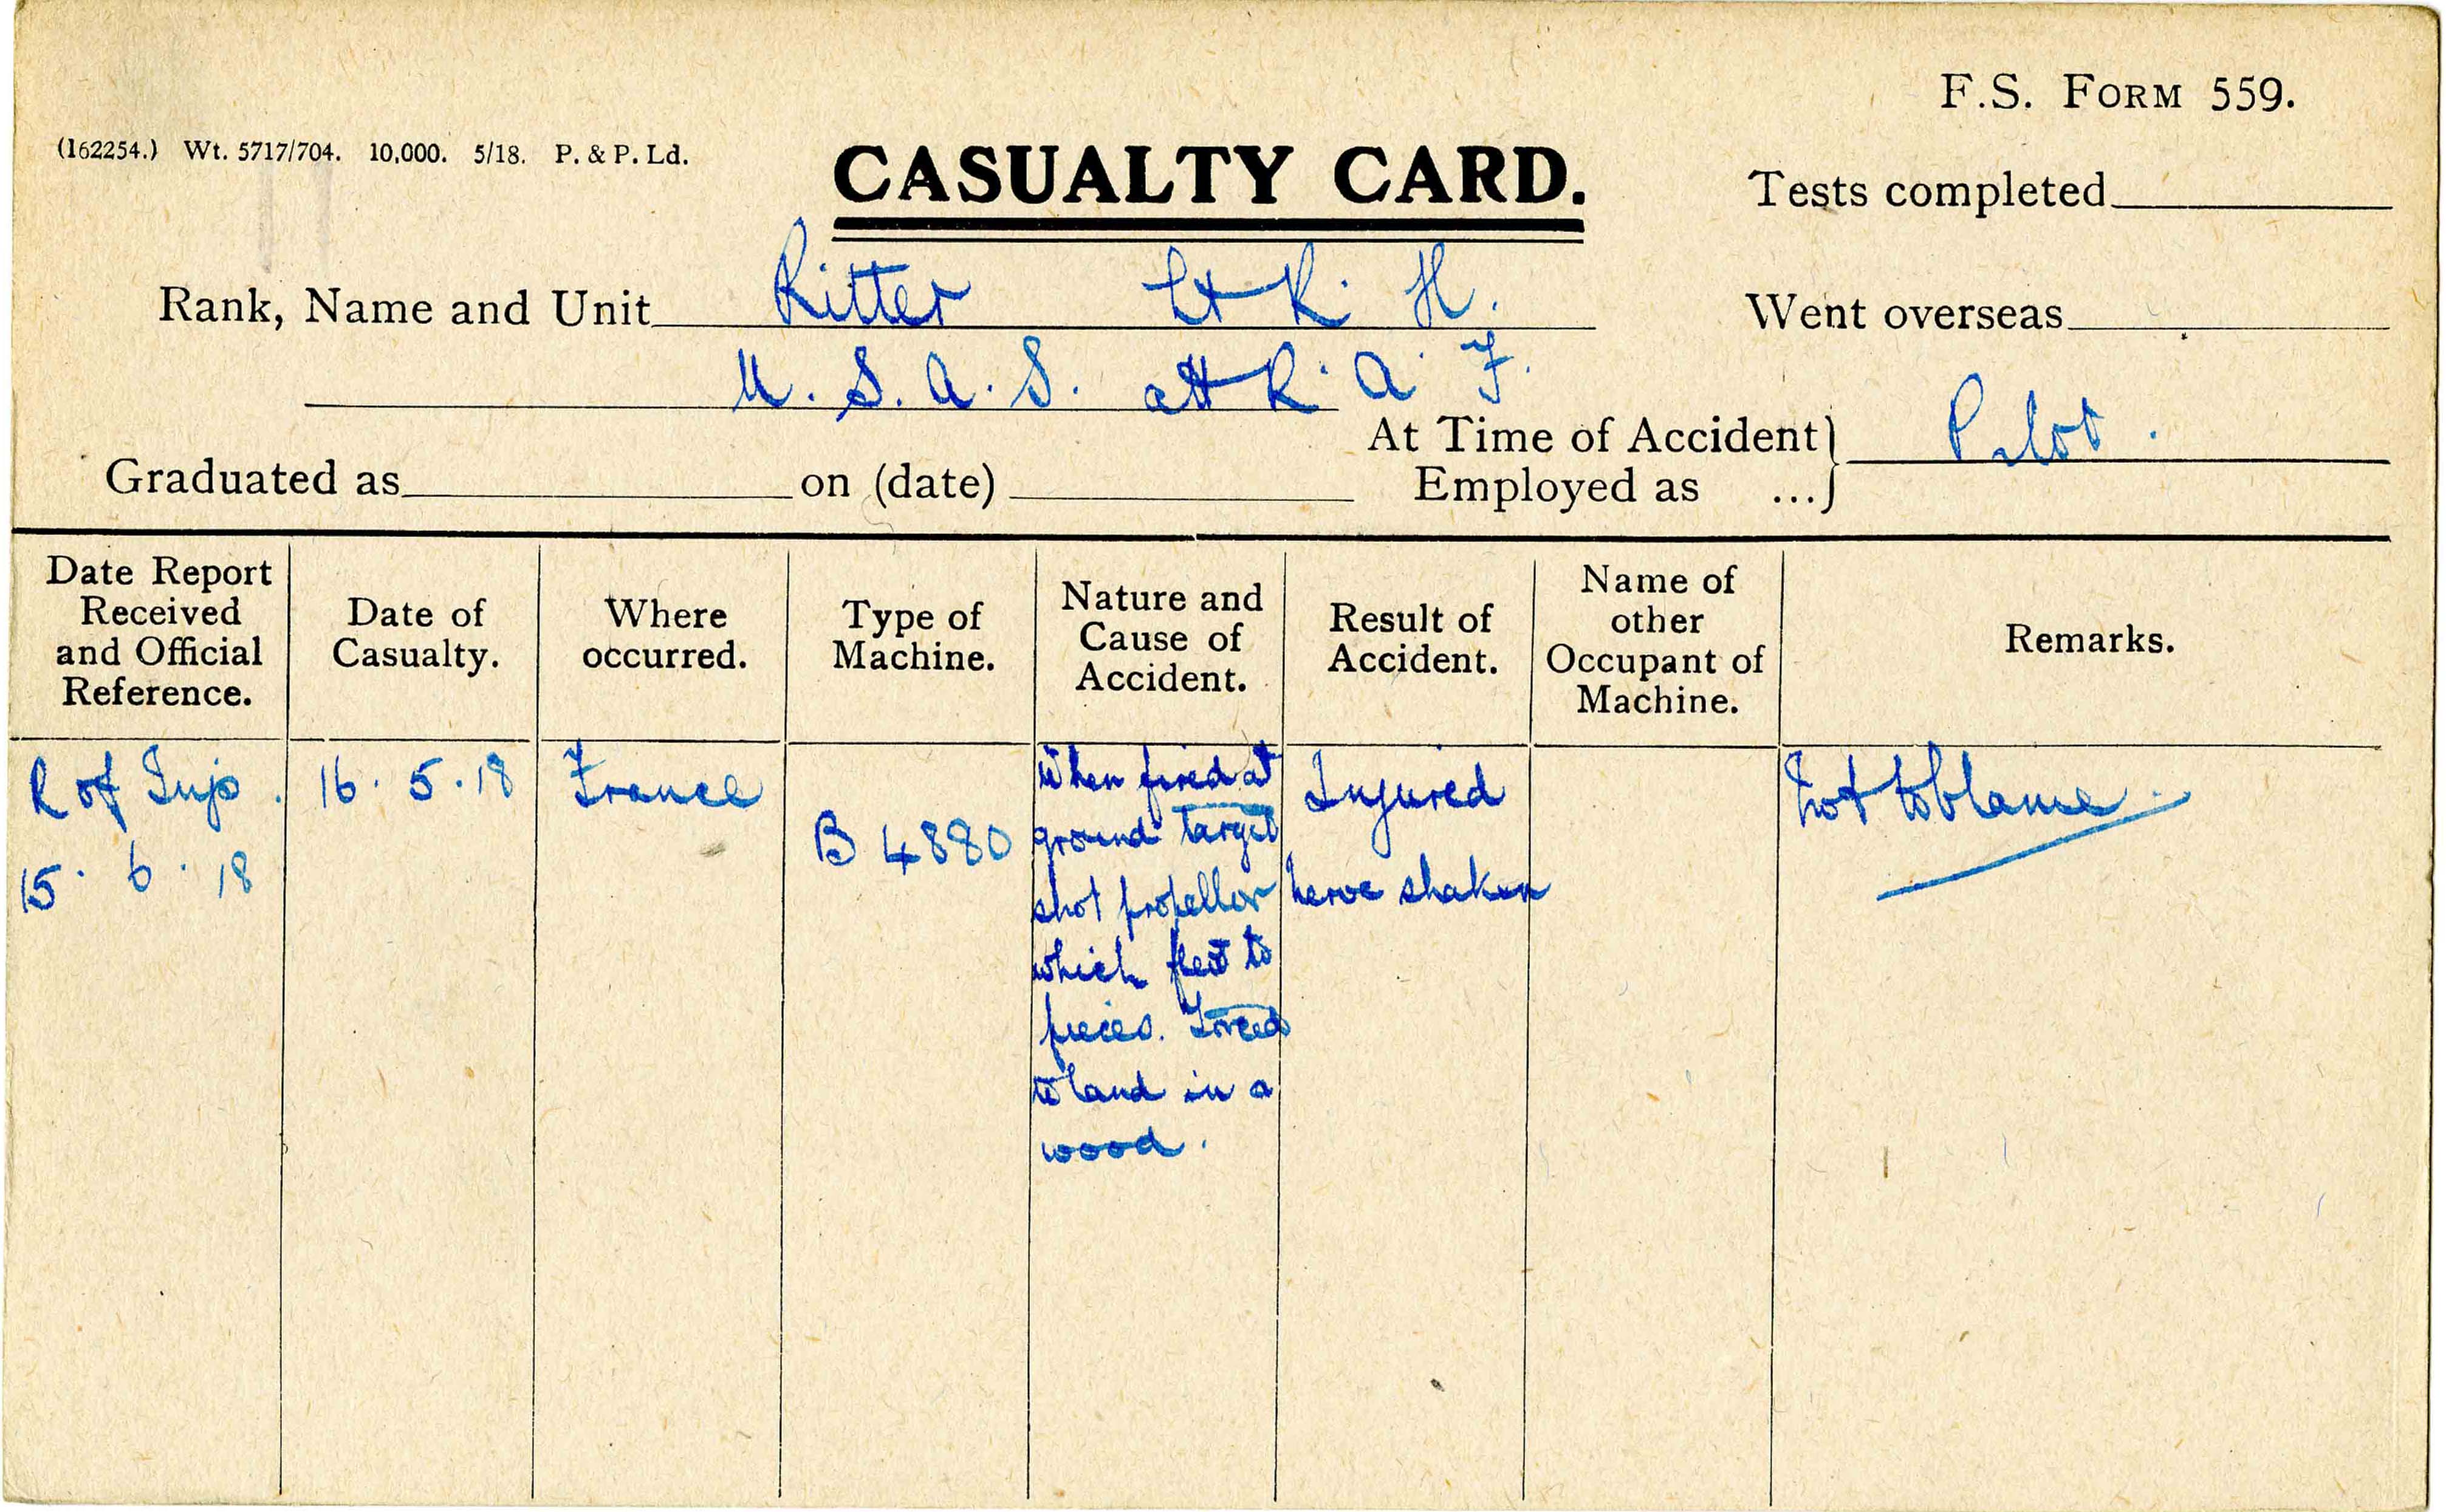 F.S. FORM 559.
(162254.) Wt. 5717/704. 10,000. 5/18. P. & P. Ld.
CASUALTY CARD.
Tests completed
Rank, Name and Unit Ritter Lt R. H.
Went overseas
U. S. A. S. att R. A. F.
At Time of Accident
Employed as ...} Pilot.
Graduated as on (date)
Date Report
Received
and Official
Reference.
Date of
Casualty.
Where
occurred.
Type of
Machine.
Nature and
Cause of
Accident.
Result of
Accident.
Name of
other
Occupant of
Machine.
Remarks.
R of Inj.
15. 6. 18
16. 5. 18
France
B 4880
When fired at
ground target
shot propellor
which flew to
pieces. Forced
to land in a
wood.
Injured
nerve shaken
Not to blame.